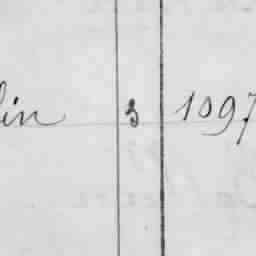 lin 3 1097